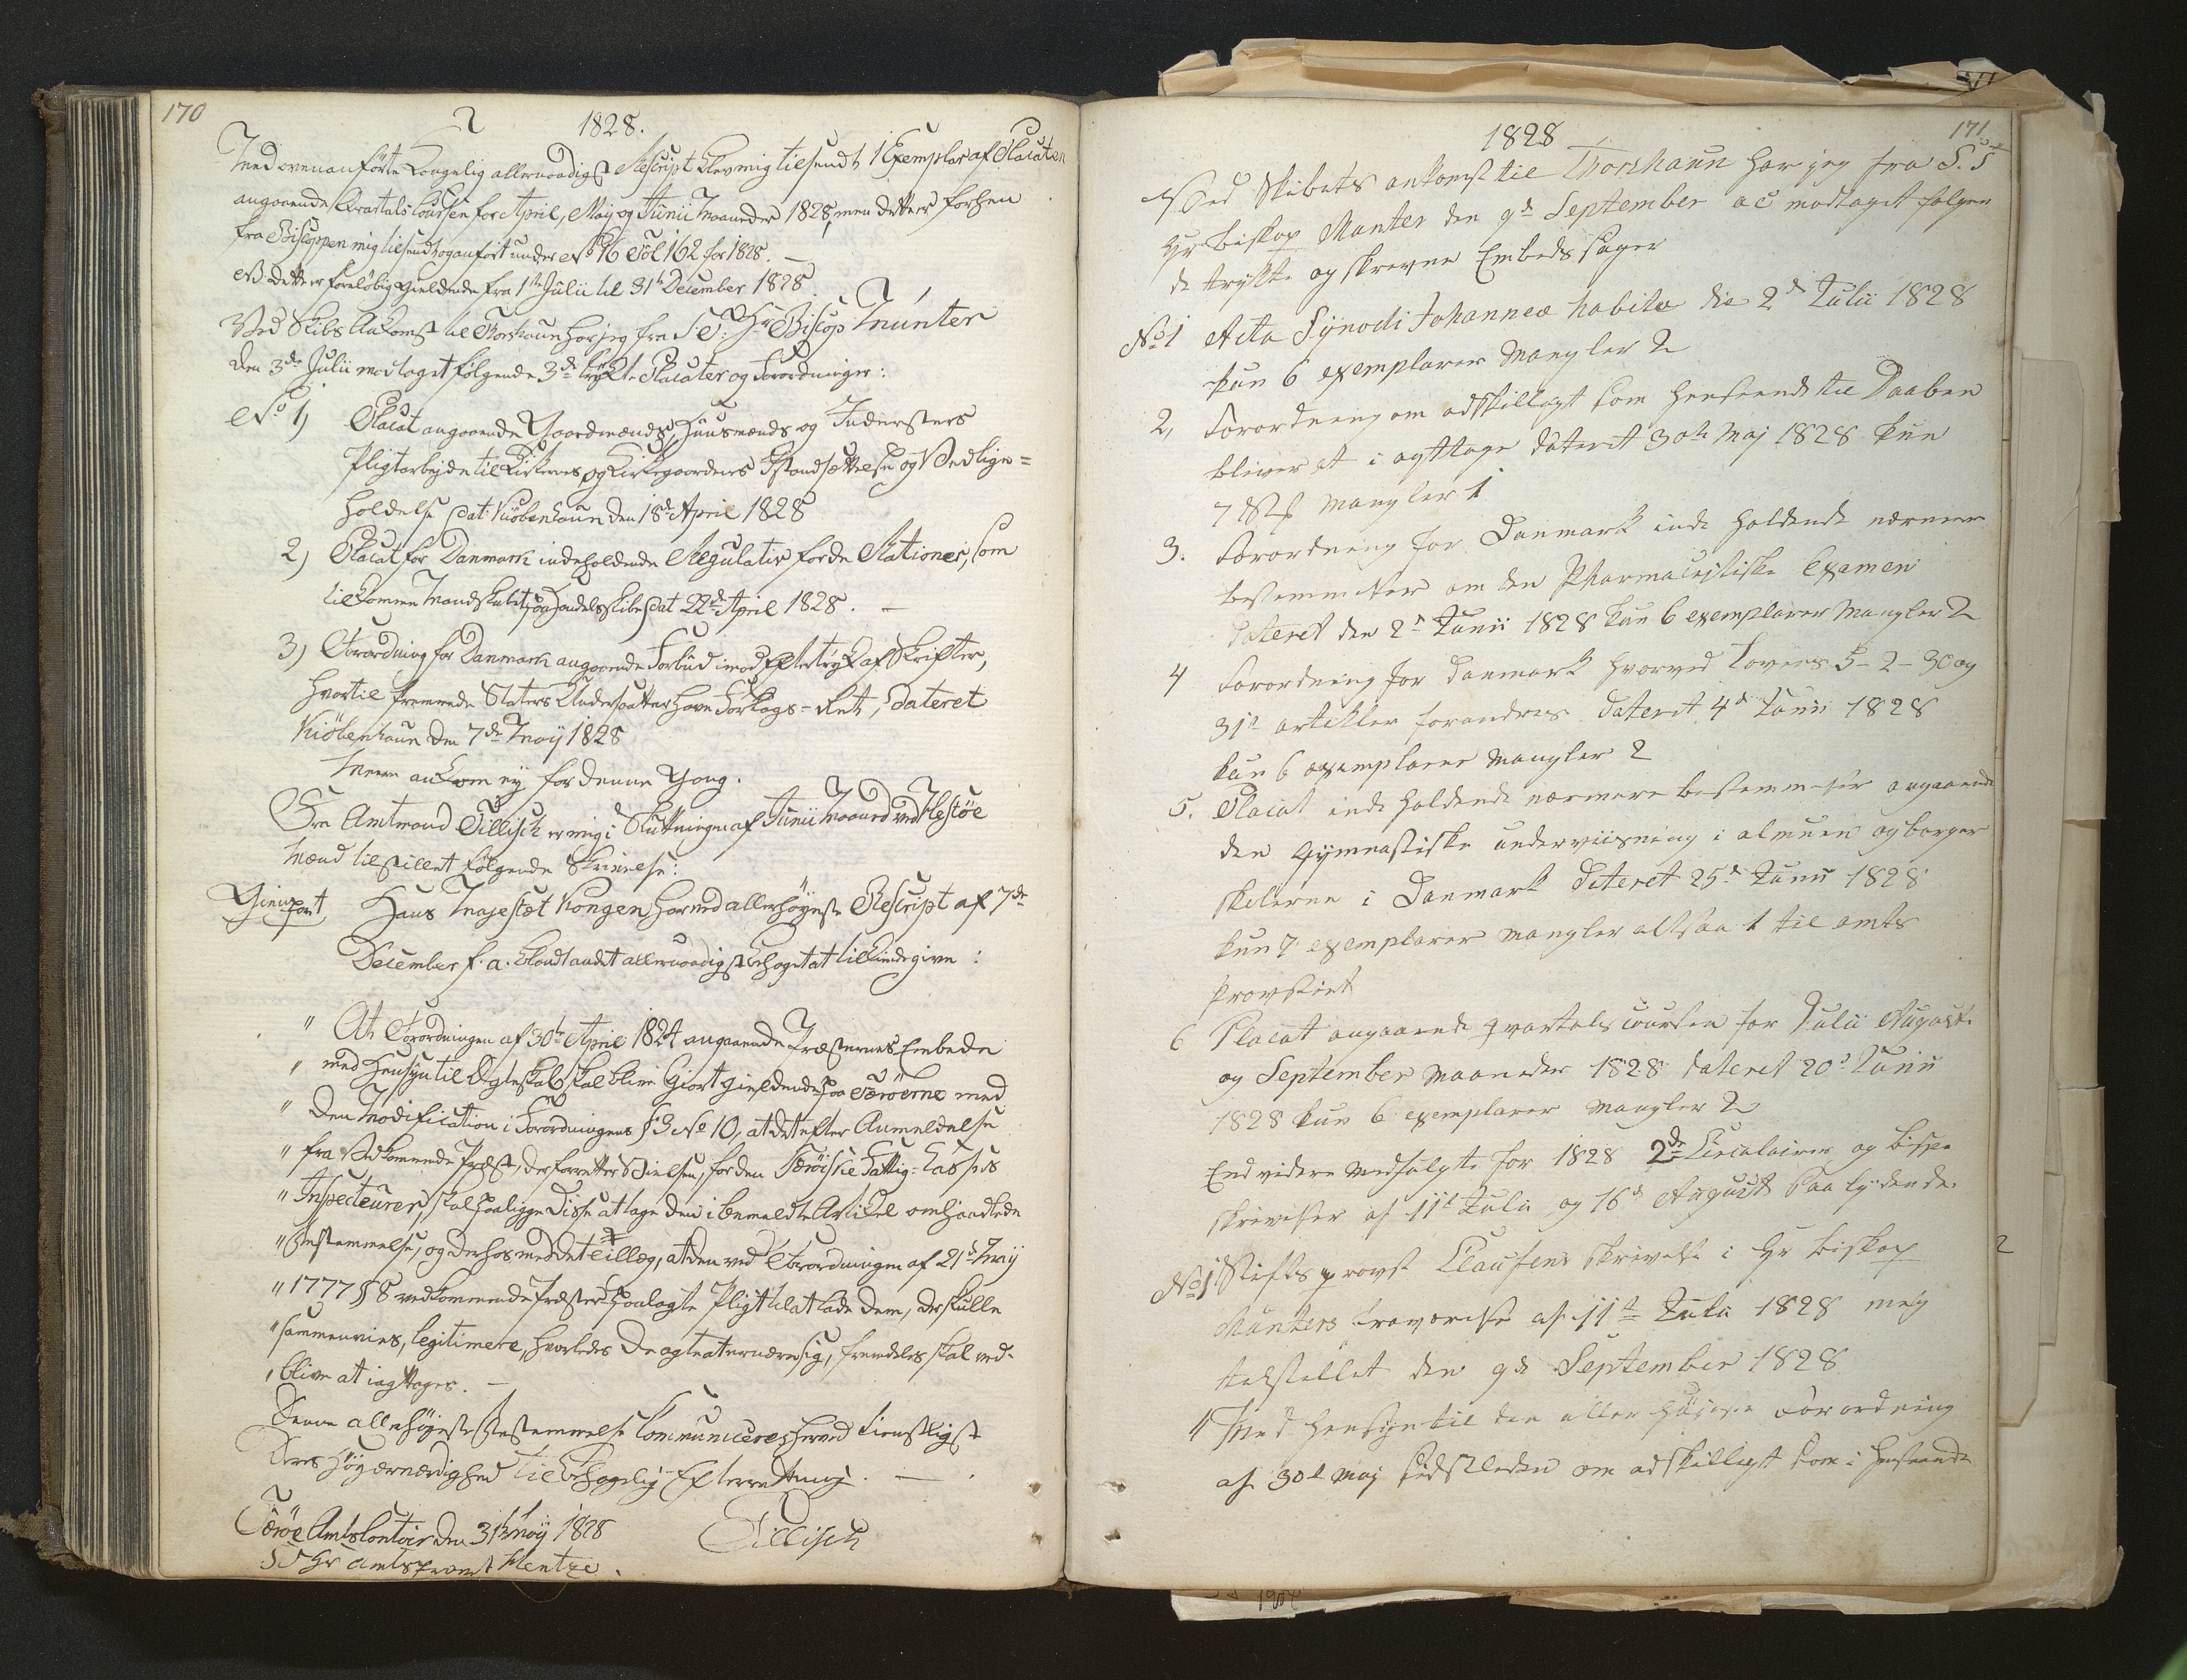 170
1828.
Med ovenanförte Kongelig allernaadigst Rescript blev mig tilsendt 1 Exemplar af Placaten
angaaende Qvartals Coursen for April, Maj og Junii Maaneder 1828, men dette er forhen
fra Biscoppen mig tilsendt og anfört under No 16 Fol 162 for 1828. —
NB dette er foreløbig gieldende fra 1ste Julii til 31te December 1828
Ved Skibs Ankomst til Thorshaun har jeg fra S: T: Hr Biscop Münter
den 3de Julii modtaget følgende 3de trykte Placater og Forordninger:
No 1) Placat angaaende Gaardmænds, Huusmænds og Indersters
Pligtarbejde til Kirkernes og Kirkegaardenes Istandsættelse og Vedlige=
holdelse Dat: Kiöbenhaun den 18de April 1828
2) Placat for Danmark indeholdende Regulativ for de Rationer, som
tilkomme Mandskabet paa Handelsskibe Dat 22de April 1828. —
3) Forordning for Danmark angaaende Forbud imod Eftertryk af Skrifter,
hvortil fremmede Staters Undersaatter have Forlags-Ret, Dateret
Kiöbenhaun den 7de Maÿ 1828
Meere ankom ej for denne Gang.
Fra Amtmand Tillisch er mig i Slutningen af Junii Maaned ved Nestöe
Mænd tilstillet følgende Skrivelse:
Hans Majestæt Kongen har ved allerhöyeste Rescript af 7de
December f. a. blandt andet allernaadigst behaget at tilkiendegive:
" At Forordningen af 30te April 1824 angaaende Præsternes Embede
" med Hensyn til Ægteskab skal blive Giort gieldende paa Færöerne med
" den Modification i Forordningens § 3 No 10, at det efter Anmeldelse
" fra Vedkommende Præst, der forretter Vielsen, for den Færöiske Fattig-Casses
" Inspecteurer, skal paaligge Disse at tage den i bemeldte Artikel omhandlede
" Bestemmelse, og derhos med det Tillæg, at den ved Forordningen af 21de Maÿ
" 1777 § 8 vedkommende Præster paalagte Pligt til at lade dem, der skulle
" sammenvies, legitimere, hvorledes De agte at ernære sig, fremdeles skal ved-
" blive at iagttages. —
Denne allerhöyeste Bestemmelse Communiceres herved tienstligst
Deres Höyærværdighed til behagelig Efterretning. —
Færöe Amts Contoir den 31te Maÿ 1828 Tillisch
S T Hr Amtsprovst Hentze.
171
1828
Ved Skibets ankomst til Thorshaun har jeg fra S. T
Hr Biskop Munter den 9de September a c modtaget følgen
de trykte og skrevne Embeds sager
No 1 Acta Synodi Johanneæ habitæ die 2de Julii 1828
kun 6 exemplarer Mangler 2
2, Forordning om adskilligt som henseende til Daaben
bliver at i agttage Dateret 30te Maj 1828 kun
7 Stk Mangler 1
3. Forordning for Danmark inde holdende nærmere
bestemmelser om den Pharmaceutiske Examen
Dateret den 2de Junii 1828 kun 6 exemplarer Mangler 2
4 Forordning for Danmark hvorved Lovens 5-2-30 og
31te artikler forandres Dateret 4de Junii 1828
kun 6 exemplarer Mangler 2
5. Placat inde holdende nærmere bestemmelser angaaende
den Gymnastiske underviisning i almue og borger
skolerne i Danmark Dateret 25de Junii 1828
kun 7 exemplarer Mangler altsaa 1 til amts
Provstiet
6 Placat angaaende qvartals coursen for Julii August
og September Maaneder 1828 Dateret 20de Junii
1828 kun 6 exemplarer Mangler 2
End videre Medfulgte for 1828 2de Circulairer og bispe
skrivelser af 11te Julii og 16de August saa lydende.
No 1 Stifts provst Clausens Skrivelse i Hr Biskop
Münters Fraværelse af 11te Julii 1828 mig
tilstillet den 9de September 1828
" Med Hensyn til den aller höyeste Forordning
af 30te Maj sidstleden om adskilligt som i Henseende
2